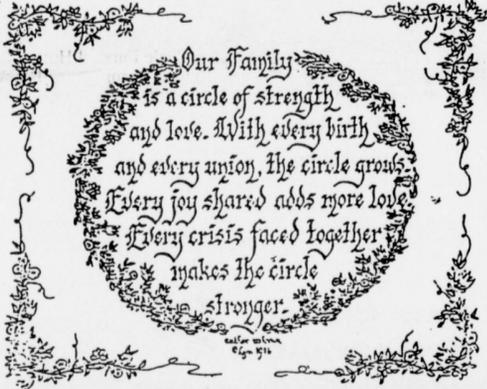 Our Family
is a circle of strength
and love. With every birth
and every union, the circle grows.
Every joy shared adds more love
Every crisis faced together
makes the circle
stronger.